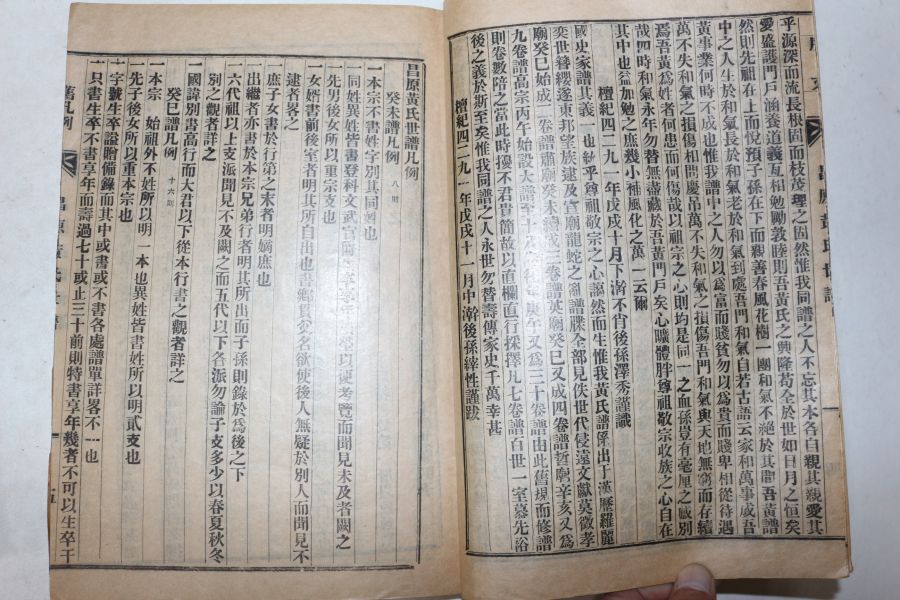 平源深而流長根固而枝茂理之固然惟我同譜之人不忘其本各自親其親愛其
愛盛護門戶涵養道義互相勉勵敦睦則吾黃氏之興隆萄全於世如日月之恒矣
然則先祖在上而悅預子孫在下而親善春風花樹一團和氣不絕於其間吾黃譜
中之人生於和氣長於和氣老於和氣到處吾門和氣自若古語云家和萬事成吾
黃事業何時不成也惟我譜中之人勿以爲富而賤貧勿以爲貴而賤卑相從待遇
萬不失和氣之損傷相問慶吊萬不失和氣之損傷吾門和氣與天地無窮而存續
焉吾人黃姓者何患而何傷哉以祖宗之心則均是同一之血孫豈有毫厘之感別
哉四時和氣永年勿替無盡藏於吾黃門戶矣心曠體胖尊祖敬宗收族之心自在
其中也益加勉之庶幾小補風化之萬一云爾
檀紀四二九一年戊戌十月下澣不肖後孫澤秀謹識
國史家譜其義一也紗乎尊祖敬宗之心謁然而生惟我黃氏譜係出于漢歷羅麗
奕世簪纓遂東邦望族逮及宣廟龍蛇之亂譜牒全部見佚世代侵遠文獻莫徵孝
廟癸巳始成一卷譜肅廟癸未續成三卷譜英廟癸巳又成四卷譜哲廟辛亥又爲
九卷譜高宗丙午始設大譜至十五卷庚午又爲三十卷譜由此舊規而修譜
則卷數陪之當此時擾不君貴簡故以直欄直行採擇凡七卷譜自世一室慕先裕
後之義於斯至矣惟我同譜之人永世勿替壽傳家史千萬幸甚
檀紀四二九一年戊戌十一月中澣後孫縡性謹跋
昌原黃氏世譜凡例
癸未譜凡例 八則
一本宗不書姓字別其同姓也
一同姓異姓皆書登科文武官爵以便考覽而聞見未及者闕之
一先男後女所以重本宗也
一女婿書前後室者明其所自出也書鄉貫父名欲使後人無疑於別人而聞見不
逮者畧之
一庶子女書於行第之末者明嫡庶也
一出繼者亦書於本宗兄弟之行者明其所出而子孫則錄於爲後之下
一六代祖以上支派聞見不及闕之而五代以下各派勿論子支多少以春夏秋冬
別之觀者詳之
一國諱別書高行而大君以下從本行書之觀者詳之
癸巳譜凡例 十六則
一本宗 始祖外不姓所以明一本也異姓皆書姓所以明貳支也
一先子後女所以重本宗也
一字號生卒謚贈備錄而其中或書或不書各處譜單詳畧不一也
一只書生卒不書享年而壽過七十或止三十前則特書享年幾者不可以生卒干
舊凡例